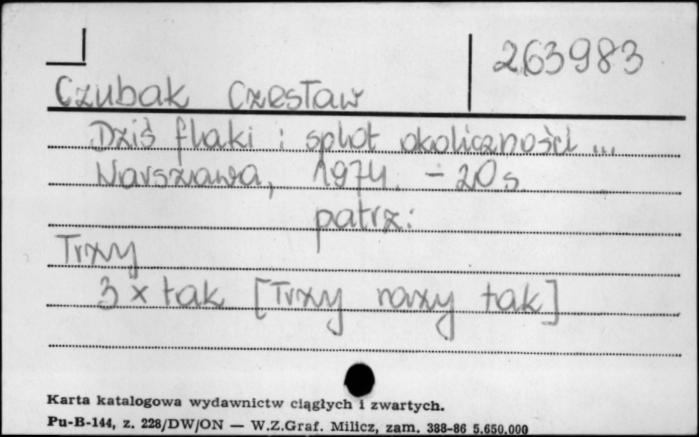 263983
Czubak Czesław
Dziś flaki i splot okoliczności ...
Warszawa, 1974. – 20 s.
patrz:
Trzy
3 x tak [Trzy razy tak]
Karta katalogowa wydawnictw ciągłych i zwartych.
Pu-B-144, z. 228/DW/ON — W.Z.Graf. Milicz, zam. 388-86 5.650.000